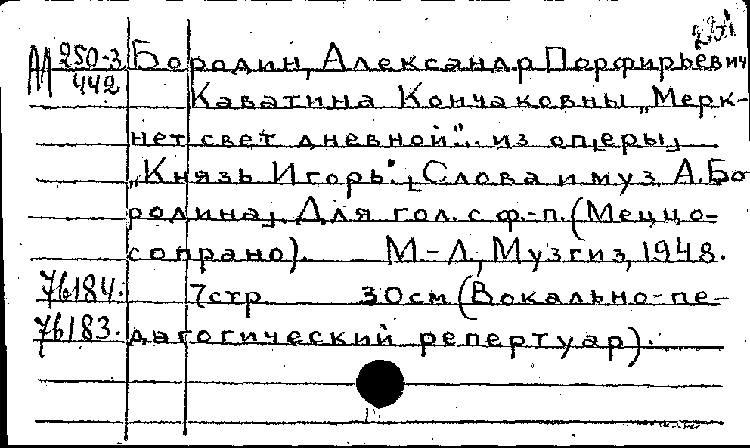 М 250-3 Бородин, Александр Порфирьевич
442 Каватина Кончаковны „Мерк-
нет свет дневной“.. из оперы
„Князь Игорь“. Слова и муз. А. Бо
родина. Для гол. с ф.-п. (Меццо-
сопрано). М.-Л., Музгиз, 1948.
76184. 7 стр 30 см (Вокально-пе-
76183. дагогический репертуар).